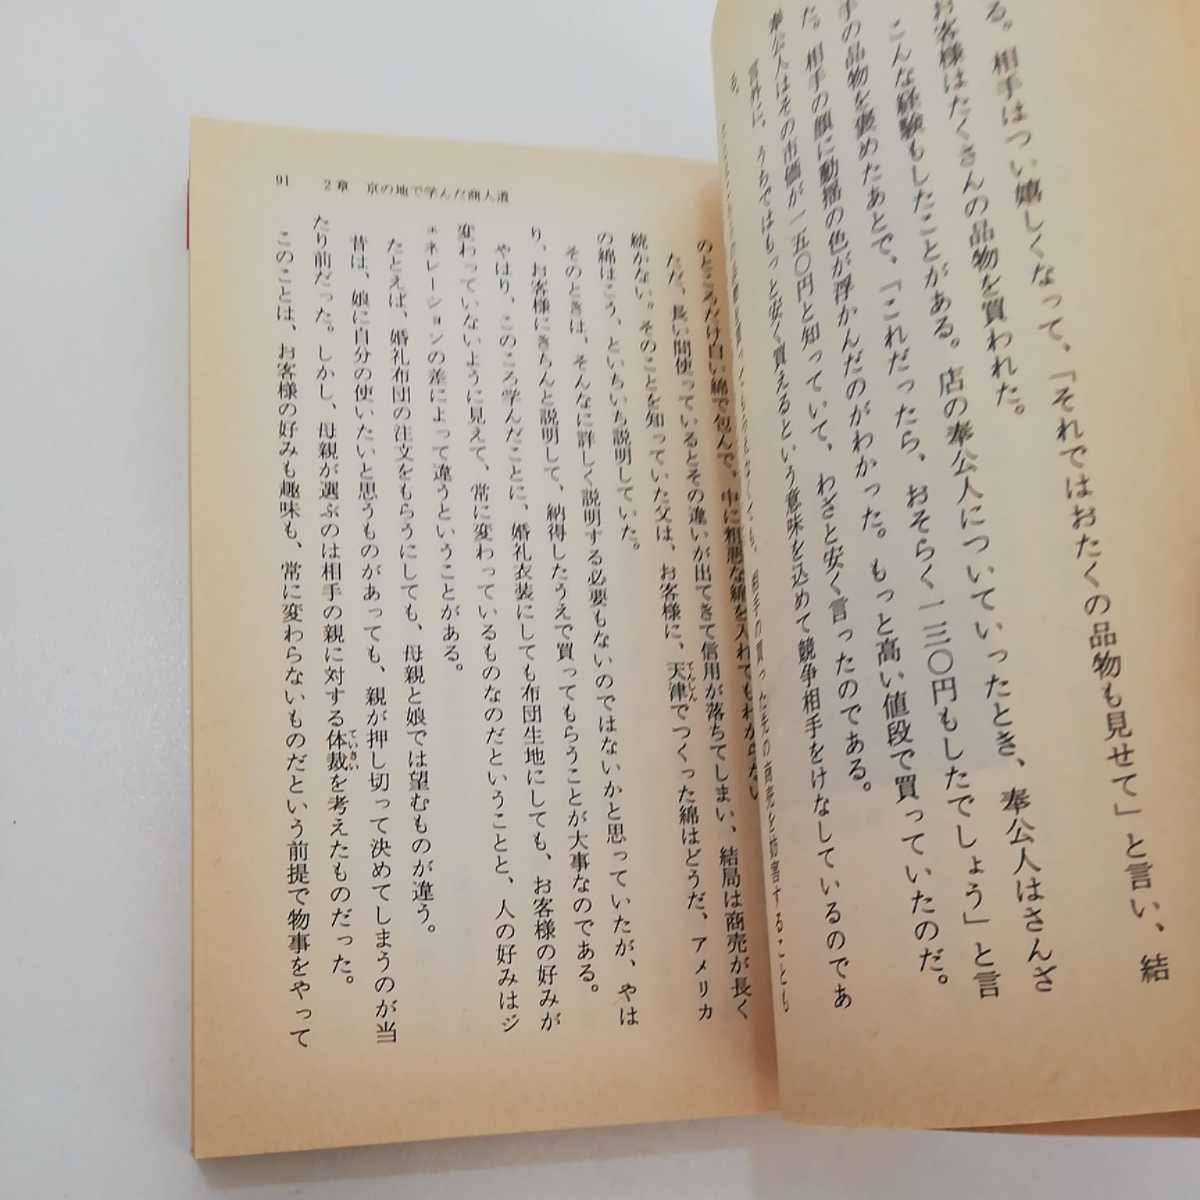 る。相手はつい嬉しくなって、「それではおたくの品物も見せて」と言い、結
お客様はたくさんの品物を買われた。
こんな経験もしたことがある。店の奉公人についていったとき、奉公人はさんざ
手の品物を褒めたあとで、「これだったら、おそらく一三〇円もしたでしょう」と言
た。相手の顔に動揺の色が浮かんだのがわかった。もっと高い値段で買っていたのだ。
奉公人はその市価が一五〇円と知っていて、わざと安く言ったのである。
言外に、うちではもっと安く買えるという意味を込めて競争相手をけなしているのであ
る。
相手の買った先の商売を妨害することも
91 2章 京の地で学んだ商人道
のところだけ白い綿で包んで、中に粗悪な綿を入れてもわからない
ただ、長い間使っているとその違いが出てきて信用が落ちてしまい、結局は商売が長く
続かない。そのことを知っていた父は、お客様に、天津でつくった綿はどうだ、アメリカ
てんしん
の綿はこう、といちいち説明していた。
そのときは、そんなに詳しく説明する必要もないのではないかと思っていたが、やは
り、お客様にきちんと説明して、納得したうえで買ってもらうことが大事なのである。
やはり、このころ学んだことに、婚礼衣装にしても布団生地にしても、お客様の好みが
変わっていないように見えて、常に変わっているものなのだということと、人の好みはジ
ェネレーションの差によって違うということがある。
たとえば、婚礼布団の注文をもらうにしても、母親と娘では望むものが違う。
昔は、娘に自分の使いたいと思うものがあっても、親が押し切って決めてしまうのが当
たり前だった。しかし、母親が選ぶのは相手の親に対する体裁を考えたものだった。
ていさい
このことは、お客様の好みも趣味も、常に変わらないものだという前提で物事をやって